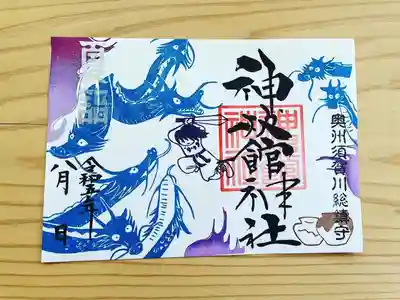 奥州須賀川総鎮守
神炊館神社
令和五年
八月 日